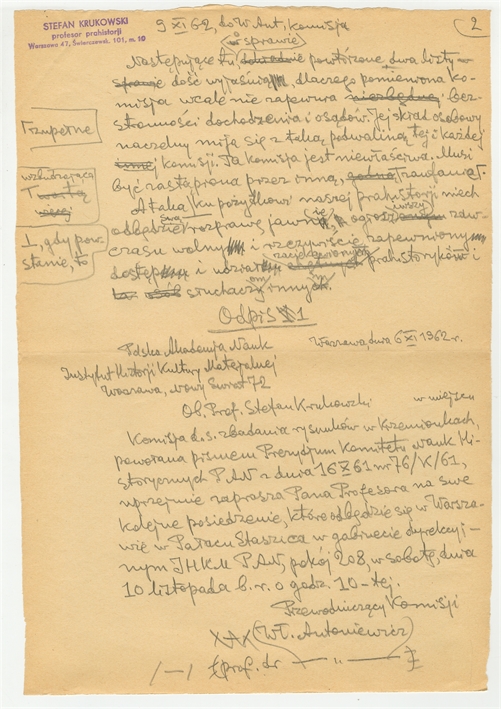 STEFAN KRUKOWSKI
profesor prahistorji
Warszawa 47, Świerczewsk. 101, m. 10
9 XI 62, do W. Ant, komisja
2
w sprawie
Następujące tu powtórzone dwa listy
dość wyjaśnią, dlaczego pomieniona ko-
misja wcale nie zapewnia bez-
stronności dochodzenia i osądów. Jej skład osobowy
naczelny mija się z taką podwaliną tej i każdej
innej komisji. Ta komisja jest niewłaściwa. Musi
być zastąpiona przez inną,
Tzupełne
wzbudzającą
A taka ku pożytkowi naszej prahistorji niech
swą
odbędzie rozprawę jawnie,
czasu wolnym i rzeczywiście zapewnionym
1, gdy pow-
stanie, to
zaciekawionych
dostępu i udział prahistoryków i
słuchaczy innych.
Odpis 1
Polska Akademja Nauk
Warszawa, dnia 6 XI 1962 r.
Instytut Historji Kultury Materjalnej
Warszawa, Nowy Świat 72
Ob. Prof. Stefan Krukowski
w miejscu
Komisja d.s. zbadania rysunków w Krzemionkach,
powołana pismem Prezydjum Komitetu Nauk Hi-
storycznych PAN z dnia 16 X 61 nr 76/X/61,
uprzejmie zaprasza Pana Profesora na swe
kolejne posiedzenie, które odbędzie się w Warsza-
wie w Pałacu Staszica w gabinecie dyrekcyj-
nym IHKM PAN, pokój 208, w sobotę, dnia
10 listopada b.r. o godz. 10-tej.
Przewodniczący Komisji
(Wł. Antoniewicz)
/—/ (prof. dr — " —)